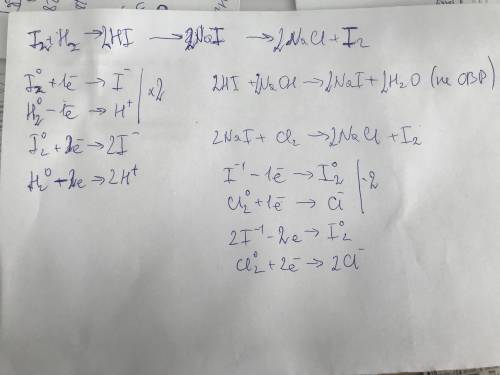 I₂+H₂ → 2HI → 2NaI → 2NaCl + I₂
I₂⁰ + 1ē → I⁻ | ×2
H₂⁰ – 1ē → H⁺
I₂⁰ + 2ē → 2I⁻
H₂⁰ – 2ē → 2H⁺
2HI + 2NaOH → 2NaI + 2H₂O (не ОВР)
2NaI + Cl₂ → 2NaCl + I₂
I⁻¹ – 1ē → I₂⁰ | ·2
Cl₂⁰ + 1ē → Cl⁻
2I⁻¹ – 2e → I₂⁰
Cl₂⁰ + 2ē → 2Cl⁻